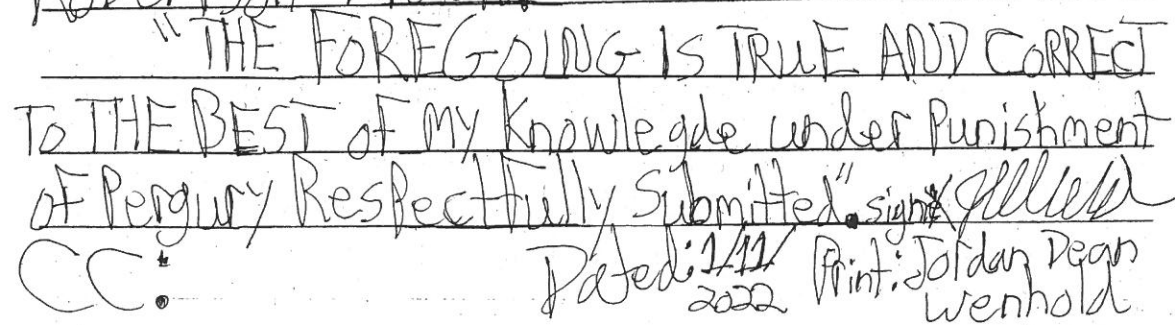 "THE FOREGOING IS TRUE AND CORRECT
TO THE BEST of MY Knowlegde under Punishment
of Pergury Respectfully Submitted". sign
CC: Dated: 1/11/2022 Print: Jordan Dean Wenhold